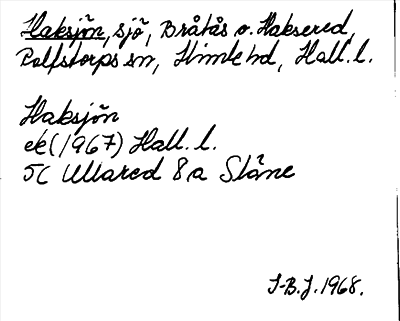 Haksjön, sjö, Bråtås o. Haksered,
Rolfstorps sn, Himle hd, Hall. l.
Haksjön
ek (1967) Hall. l.
5C Ullared 8a Slåne
I-B.J. 1968.